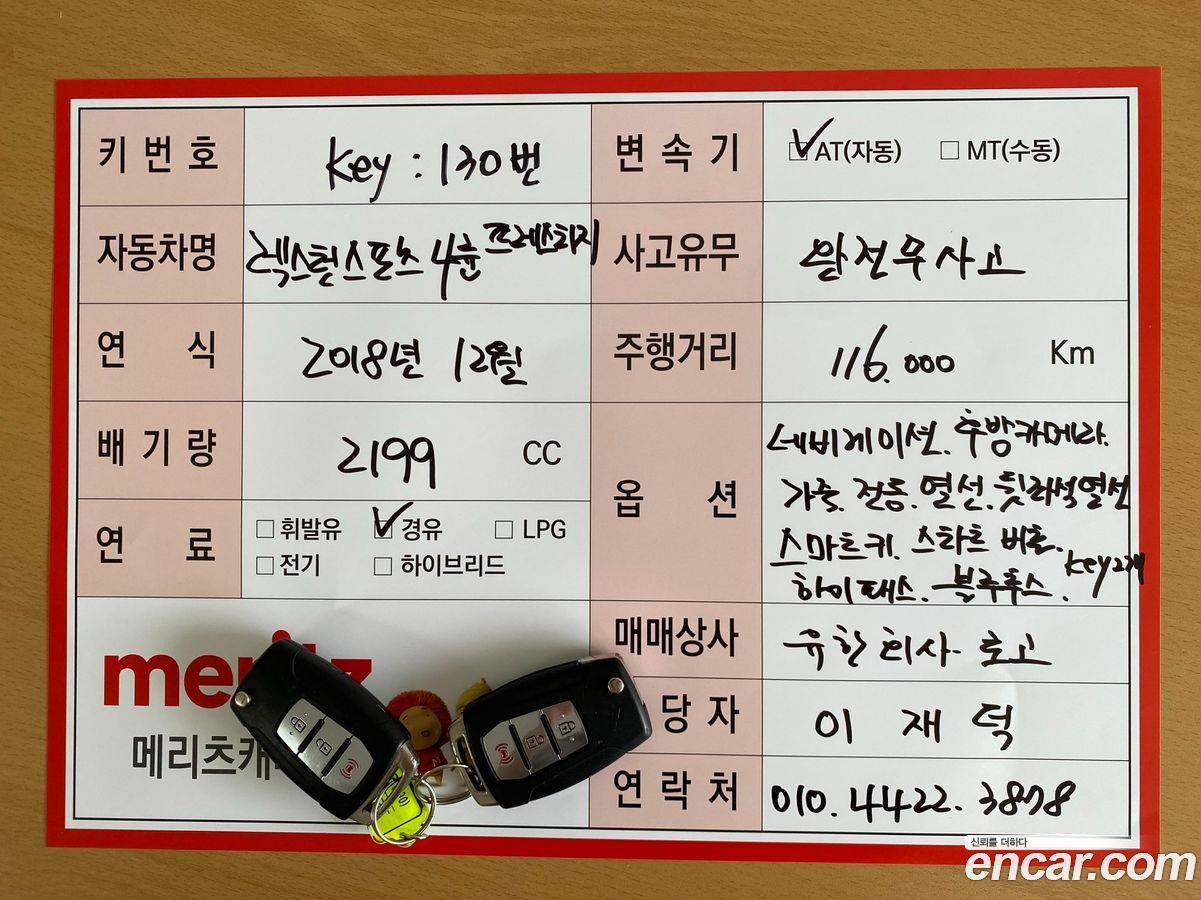 키 번 호 Key : 130번
변 속 기 ☑AT(자동) □ MT(수동)
자동차명 렉스턴스포츠 4륜 프레스티지
사고유무 완전무사고
연 식 2018년 12월
주행거리 116.000 Km
배 기 량 2199 CC
옵 션 네비게이션. 후방카메라.
가죽. 전동. 열선. 뒷좌석열선
스마트키. 스타트 버튼.
하이패스. 블루투스. Key2개
연 료 □ 휘발유 ☑ 경유 □ LPG
□ 전기 □ 하이브리드
매매상사 유한회사 로고
당 자 이 재 덕
연 락 처 010.4422.3878
메리츠캐
신뢰를 더하다
encar.com